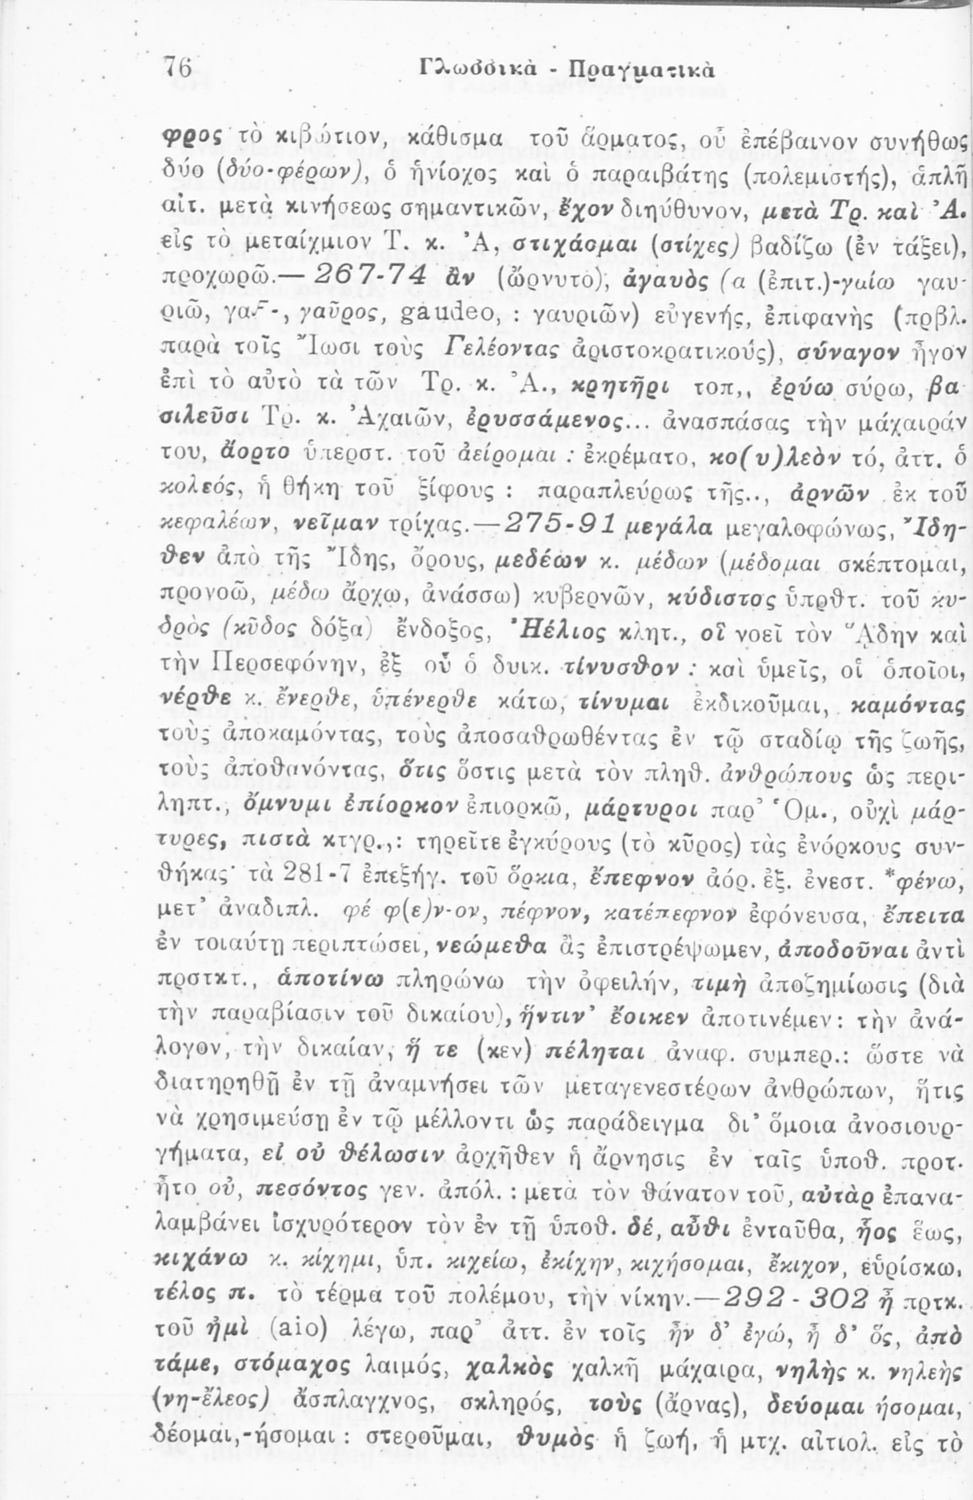 76 Γλωσσικὰ - Πραγματικὰ
φρος τὸ κιβώτιον, κάθισμα τοῦ ἅρματος, οὗ ἐπέβαινον συνήθως
δύο (δύο-φέρων), ὁ ἡνίοχος καὶ ὁ παραιβάτης (πολεμιστής), ἁπλῆ
αἰτ. μετὰ κινήσεως σημαντικῶν, ἔχον διηύθυνον, μετὰ Τρ. καὶ Ἀ.
εἰς τὸ μεταίχμιον Τ. κ. Ἀ, στιχάομαι (στίχες) βαδίζω (ἐν τάξει),
προχωρῶ.— 267-74 ἂν (ὤρνυτο), ἀγαυὸς (α (ἐπιτ.)-γαίω γαυ-
ριῶ, γαF-, γαῦρος, gaudeo, : γαυριῶν) εὐγενής, ἐπιφανὴς (πρβλ.
παρὰ τοῖς Ἴωσι τοὺς Γελέοντας ἀριστοκρατικούς), σύναγον ἦγον
ἐπὶ τὸ αὐτὸ τὰ τῶν Τρ. κ. Ἀ., κρητῆρι τοπ,, ἐρύω σύρω, βα
σιλεῦσι Τρ. κ. Ἀχαιῶν, ἐρυσσάμενος... ἀνασπάσας τὴν μάχαιράν
του, ἄορτο ὑπερστ. τοῦ ἀείρομαι : ἐκρέματο, κο(υ)λεὸν τό, ἀττ. ὁ
κολεός, ἡ θήκη τοῦ ξίφους : παραπλεύρως τῆς.., ἀρνῶν ἐκ τοῦ
κεφαλέων, νεῖμαν τρίχας.—275-91 μεγάλα μεγαλοφώνως, Ἴδη-
θεν ἀπὸ τῆς Ἴδης, ὄρους, μεδέων κ. μέδων (μέδομαι σκέπτομαι,
προνοῶ, μέδω ἄρχω, ἀνάσσω) κυβερνῶν, κύδιστος ὑπρθτ. τοῦ κυ-
δρὸς (κῦδος δόξα) ἔνδοξος, Ἠέλιος κλητ., οἳ νοεῖ τὸν Ἅδην καὶ
τὴν Περσεφόνην, ἐξ οὗ ὁ δυικ. τίνυσθον : καὶ ὑμεῖς, οἱ ὁποῖοι,
νέρθε κ. ἔνερθε, ὑπένερθε κάτω, τίνυμαι ἐκδικοῦμαι, καμόντας
τοὺς ἀποκαμόντας, τοὺς ἀποσαθρωθέντας ἐν τῷ σταδίῳ τῆς ζωῆς,
τοὺς ἀποθανόντας, ὅτις ὅστις μετὰ τὸν πληθ. ἀνθρώπους ὡς περι-
ληπτ., ὄμνυμι ἐπίορκον ἐπιορκῶ, μάρτυροι παρ' Ὁμ., οὐχὶ μάρ-
τυρες, πιστὰ κτγρ.,: τηρεῖτε ἐγκύρους (τὸ κῦρος) τὰς ἐνόρκους συν-
θήκας· τὰ 281-7 ἐπεξήγ. τοῦ ὅρκια, ἔπεφνον ἀόρ. ἐξ. ἐνεστ. *φένω,
μετ' ἀναδιπλ. φέ φ(ε)ν-ον, πέφνον, κατέπεφνον ἐφόνευσα, ἔπειτα
ἐν τοιαύτῃ περιπτώσει, νεώμεθα ἂς ἐπιστρέψωμεν, ἀποδοῦναι ἀντὶ
πρστκτ., ἀποτίνω πληρώνω τὴν ὀφειλήν, τιμὴ ἀποζημίωσις (διὰ
τὴν παραβίασιν τοῦ δικαίου), ἥντιν' ἔοικεν ἀποτινέμεν: τὴν ἀνά-
λογον, τὴν δικαίαν, ἥ τε (κεν) πέληται ἀναφ. συμπερ.: ὥστε νὰ
διατηρηθῇ ἐν τῇ ἀναμνήσει τῶν μεταγενεστέρων ἀνθρώπων, ἥτις
νὰ χρησιμεύσῃ ἐν τῷ μέλλοντι ὡς παράδειγμα δι' ὅμοια ἀνοσιουρ-
γήματα, εἰ οὐ θέλωσιν ἀρχῆθεν ἡ ἄρνησις ἐν ταῖς ὑποθ. προτ.
ἦτο οὐ, πεσόντος γεν. ἀπόλ. : μετὰ τὸν θάνατον τοῦ, αὐτὰρ ἐπανα-
λαμβάνει ἰσχυρότερον τὸν ἐν τῇ ὑποθ. δέ, αὖθι ἐνταῦθα, ἧος ἕως,
κιχάνω κ. κίχημι, ὑπ. κιχείω, ἐκίχην, κιχήσομαι, ἔκιχον, εὑρίσκω,
τέλος π. τὸ τέρμα τοῦ πολέμου, τὴν νίκην.—292 - 302 ἦ πρτκ.
τοῦ ἠμὶ (aio) λέγω, παρ' ἀττ. ἐν τοῖς ἦν δ' ἐγώ, ἦ δ' ὅς, ἀπὸ
τάμε, στόμαχος λαιμός, χαλκὸς χαλκῆ μάχαιρα, νηλὴς κ. νηλεὴς
(νη-ἔλεος) ἄσπλαγχνος, σκληρός, τοὺς (ἄρνας), δεύομαι ήσομαι,
δέομαι,-ήσομαι : στεροῦμαι, θυμὸς ἡ ζωή, ἡ μτχ. αἰτιολ. εἰς τὸ